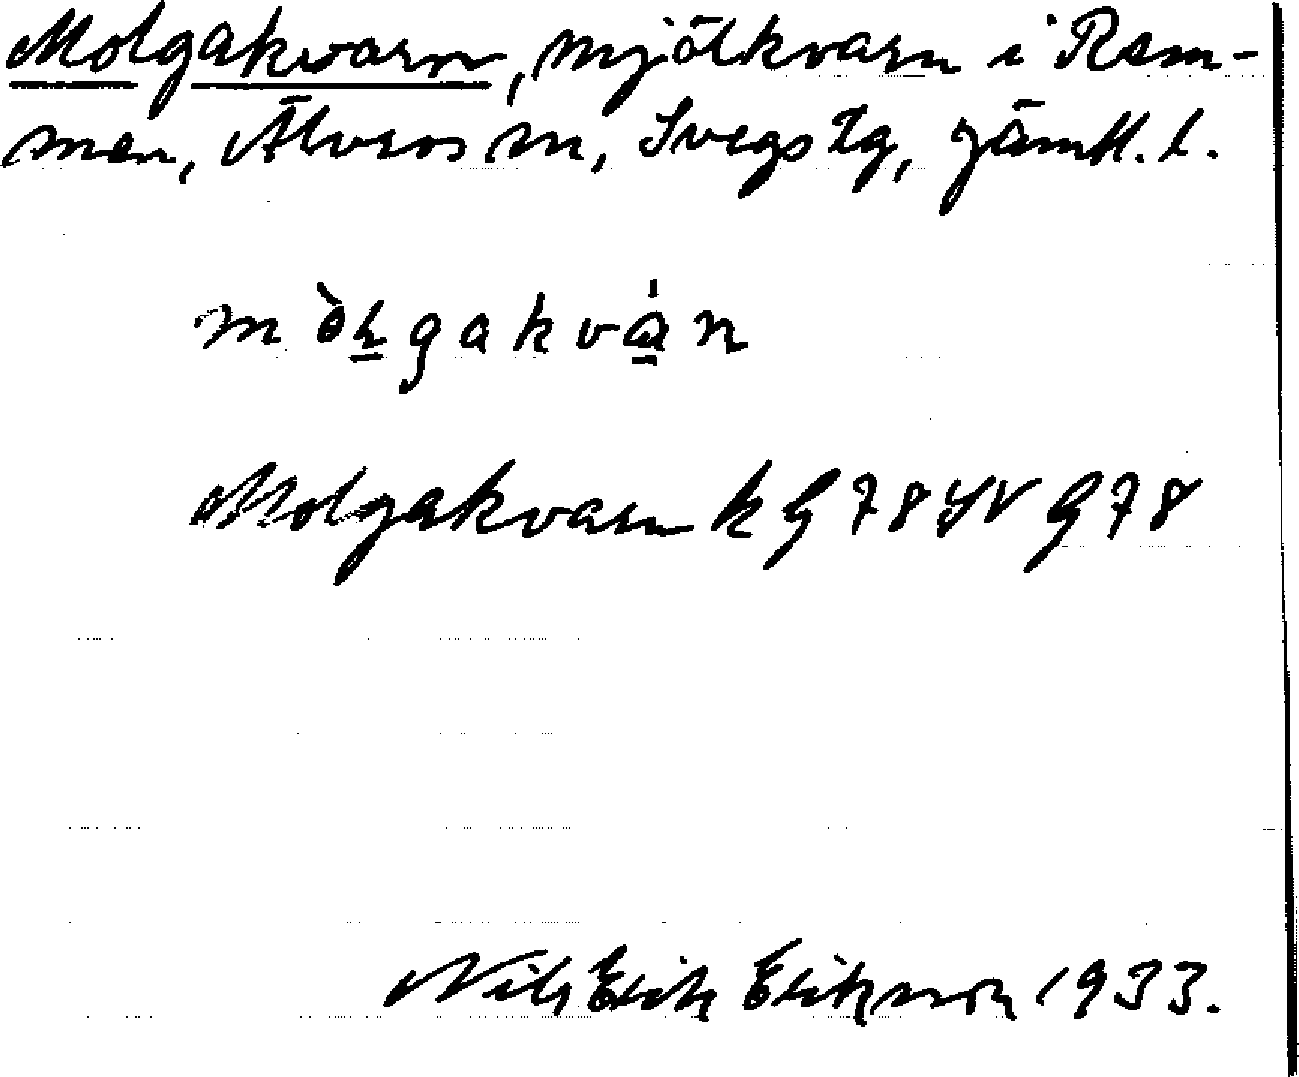 Molgakvarn, mjölkvarn i Rem-
men, Älvros sn, Svegs tg, Jämtl. l.
mòɫ̱gakvá̱n
Molgakvarn k G 78 YV G 78
Nils Erik Eriksson 1933.